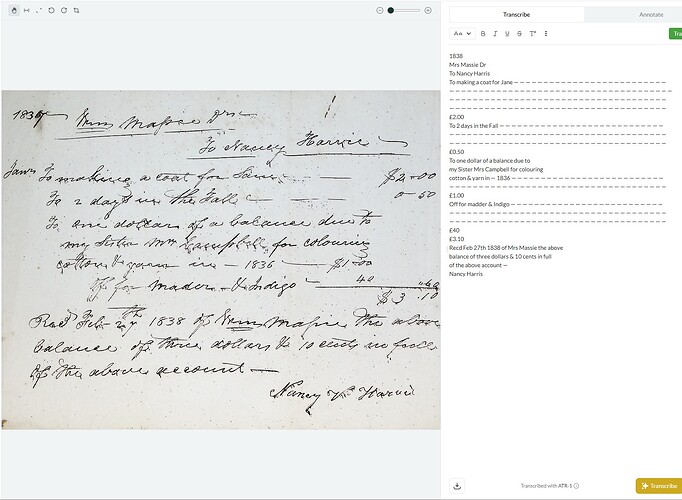 Transcribe
Annotate
Aa
B I U S T
Tra
1838
Mrs Massie Dr
To Nancy Harris
To making a coat for Jane
£2.00
To 2 days in the Fall
£0.50
To one dollar of a balance due to
my Sister Mrs Campbell for colouring
cotton & yarn in – 1836
£1.00
Off for madder & Indigo
£40
£3.10
Recd Feb 27th 1838 of Mrs Massie the above
balance of three dollars & 10 cents in full
of the above account —
Nancy Harris
Transcribed with ATR-1
Transcribe
Wm Massie Dr
To Nancy Harris
To making a coat for $2-00
To 2 days in the Fall 0-50
To one dollar of a balance due to
my Sister Mrs Campbell for colouring
cotton & yarn in – 1836 $1-00
Off for Mader & Indigo 40
$3.10
Recd Feb 27th 1838 of Wm Massie the above
balance of three dollars & 10 cents in full
of the above account —
Nancy Harris